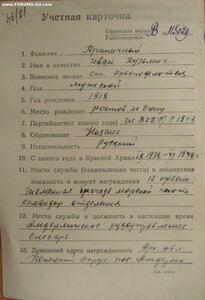 Учетная карточка
Орденская книжка В
Удостоверение
1. Фамилия Криничный
2. Имя и отчество Иван Кузьмич
3. Воинское звание ст. краснофлотец
4. Пол мужской
5. Год рождения 1918
6. Место рождения Ростов н/Дону
7. Партийность (с какого года) с 1943
8. Образование низшее
9. Национальность Русский
10. С какого года в Красной Армии с 1938 1946
11. Место службы (наименование части) и занимаемая
должность в момент награждения 12
бригада морской пехоты
командир отделения
12. Место службы и должность в настоящее время
Амдерминское рудоуправление
слесарь
13. Домашний адрес награжденного Арх. обл.
Ненецкий округ пос. Амдерма